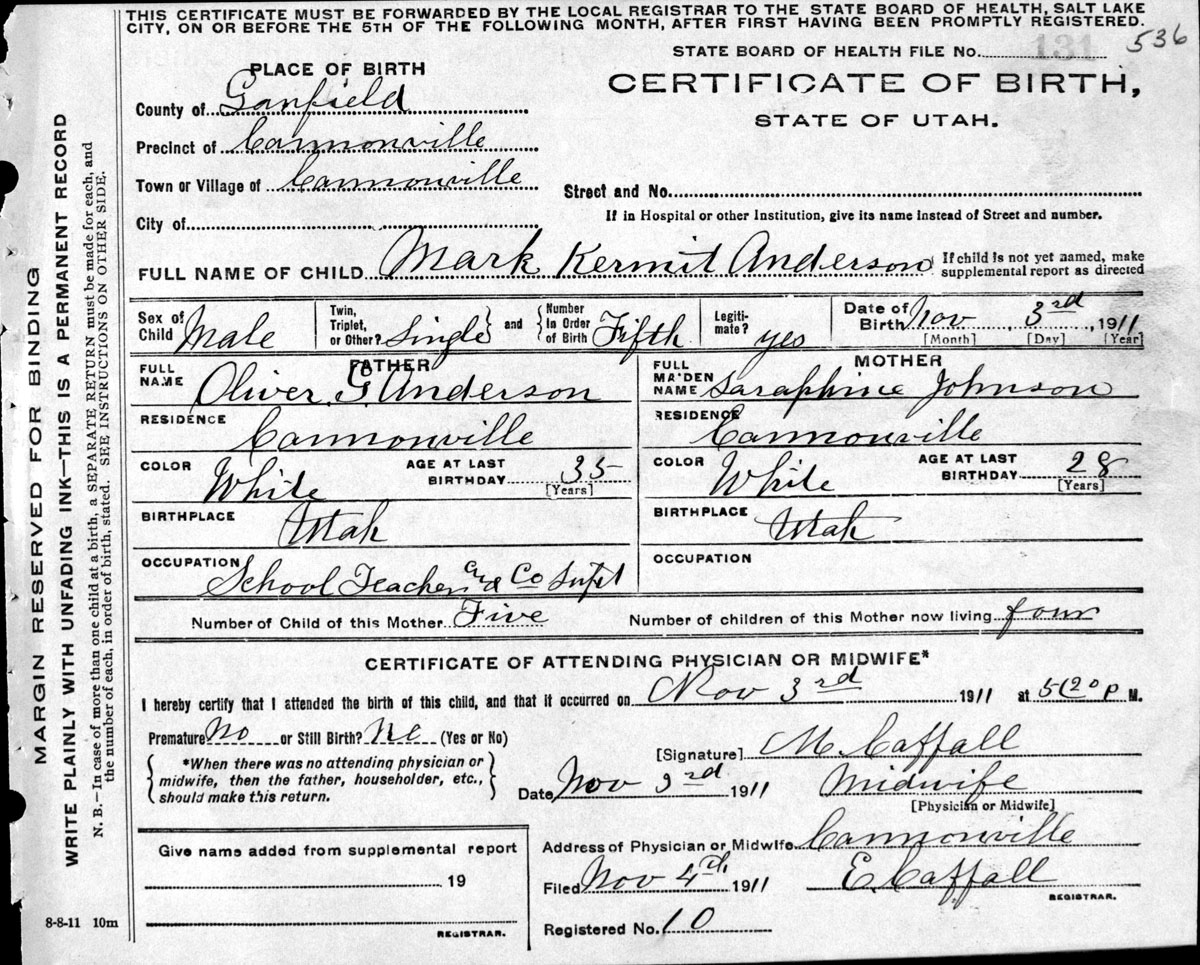 THIS CERTIFICATE MUST BE FORWARDED BY THE LOCAL REGISTRAR TO THE STATE BOARD OF HEALTH, SALT LAKE
CITY, ON OR BEFORE THE 5TH OF THE FOLLOWING MONTH, AFTER FIRST HAVING BEEN PROMPTLY REGISTERED.
536
STATE BOARD OF HEALTH FILE No. 131
CERTIFICATE OF BIRTH,
STATE OF UTAH.
PLACE OF BIRTH
County of Garfield
Precinct of Cannonville
Town or Village of Cannonville
Street and No.
City of
If in Hospital or other Institution, give its name instead of Street and number.
FULL NAME OF CHILD Mark Kermit Anderson
If child is not yet named, make
supplemental report as directed
Sex of Child Male
Twin, Triplet, or Other? Single and Number in Order of Birth Fifth
Legitimate? yes
Date of Birth Nov 3rd, 1911
[Month] [Day] [Year]
FATHER
FULL NAME Oliver G Anderson
RESIDENCE Cannonville
COLOR White
AGE AT LAST BIRTHDAY 35
[Years]
BIRTHPLACE Utah
OCCUPATION School Teacher and Co Supt
MOTHER
FULL MAIDEN NAME Saraphine Johnson
RESIDENCE Cannonville
COLOR White
AGE AT LAST BIRTHDAY 28
[Years]
BIRTHPLACE Utah
OCCUPATION
Number of Child of this Mother Five
Number of children of this Mother now living four
CERTIFICATE OF ATTENDING PHYSICIAN OR MIDWIFE*
I hereby certify that I attended the birth of this child, and that it occurred on Nov 3rd 1911 at 5(20 P M.
Premature No or Still Birth? No (Yes or No)
*When there was no attending physician or
midwife, then the father, householder, etc.,
should make this return.
[Signature] M. Caffall
Date Nov 3rd 1911 Midwife
[Physician or Midwife]
Address of Physician or Midwife Cannonville
Filed Nov 4th 1911 E. Caffall
REGISTRAR.
Registered No. 10
Give name added from supplemental report
19
REGISTRAR.
8-8-11 10m
MARGIN RESERVED FOR BINDING
WRITE PLAINLY WITH UNFADING INK—THIS IS A PERMANENT RECORD
N. B.—In case of more than one child at a birth, a SEPARATE RETURN must be made for each, and
the number of each, in order of birth, stated. SEE INSTRUCTIONS ON OTHER SIDE.